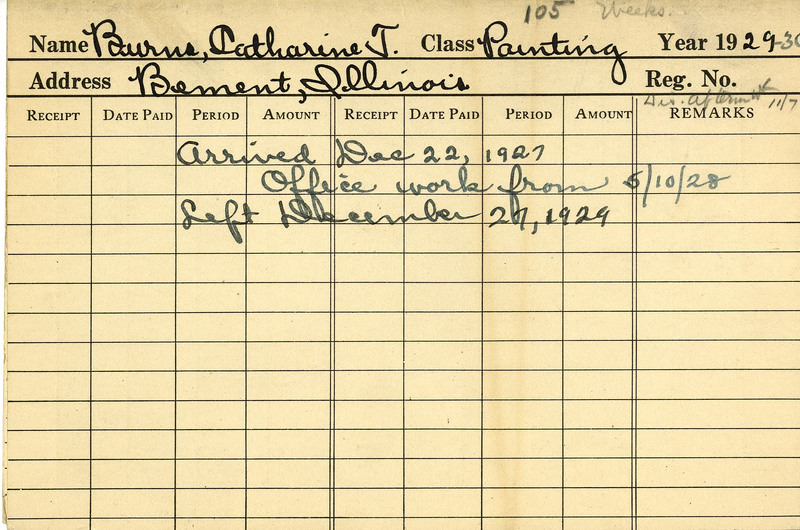 105 Weeks.
Name Burns, Catharine T. Class Painting Year 1929-30
Address Bement, Illinois Reg. No.
Dis. 11/7
RECEIPT DATE PAID PERIOD AMOUNT RECEIPT DATE PAID PERIOD AMOUNT REMARKS
Arrived Dec 22, 1927
Office work from 5/10/28
Left December 27, 1929